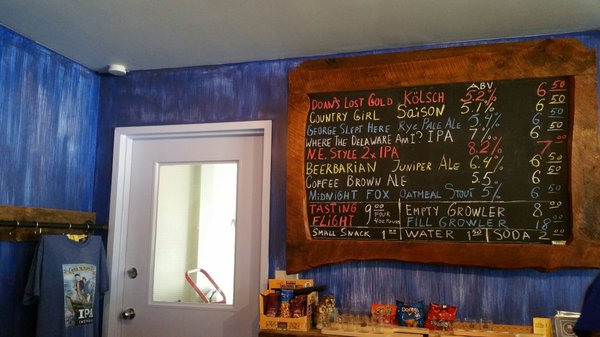 ABV
DOAN'S LOST GOLD KÖLSCH 5.2% 6 50
COUNTRY GIRL SAISON 5.1% 6 50
GEORGE SLEPT HERE RYE PALE ALE 5.4% 6 50
WHERE THE DELAWARE AM I? IPA 7% 6 50
N.E. STYLE 2X IPA 8.2% 7 00
BEERBARIAN JUNIPER ALE 6.4% 6 50
COFFEE BROWN ALE 5.5 6 50
MIDNIGHT FOX OATMEAL STOUT 5% 6 50
TASTING FLIGHT 9 00 FOUR 4OZ POURS
EMPTY GROWLER 8 00
FILL GROWLER
SMALL SNACK 1 00 WATER 1 50 SODA 2 00
IPA
Doritos